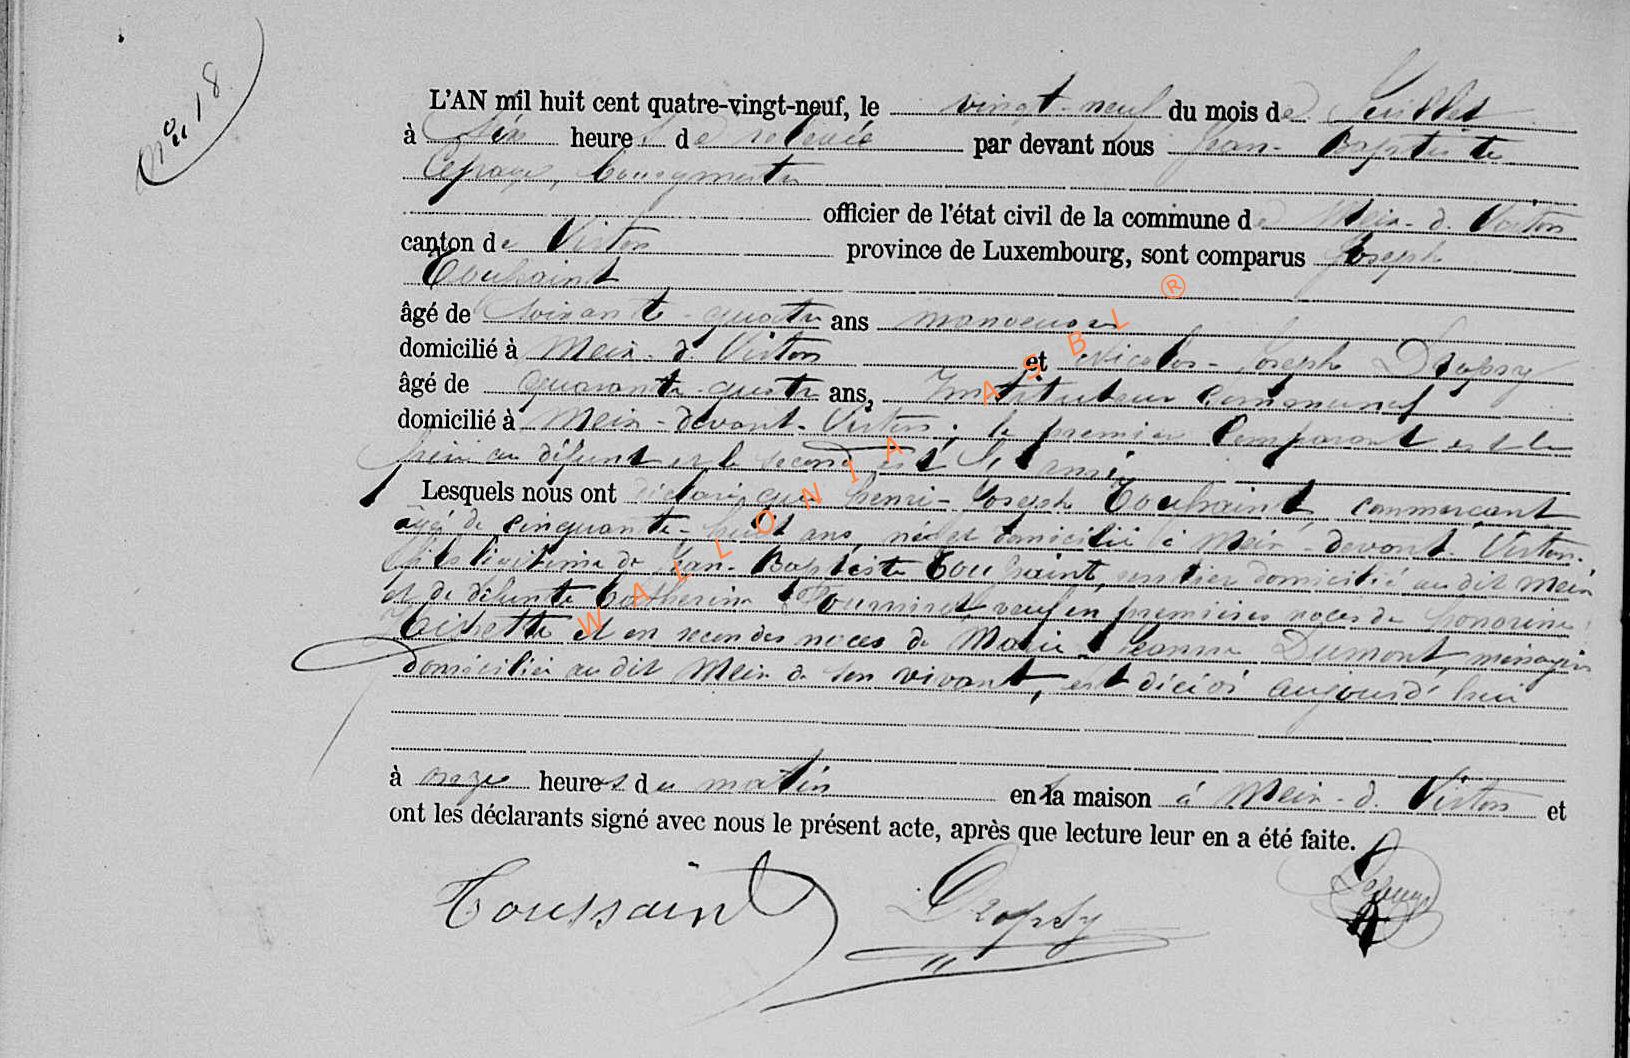 No 18
L'AN mil huit cent quatre-vingt-neuf, le vingt-neuf du mois de Juillet
à six heures de relevée par devant nous Jean-Baptiste
Lepage, bourgmestre
officier de l'état civil de la commune de Meix-d. Virton
canton de Virton province de Luxembourg, sont comparus Joseph
Toussaint
âgé de soixante-quatre ans manoeuvre
domicilié à Meix-d. Virton et Nicolas-Joseph Dropsy
âgé de quarante-quatre ans, Instituteur Communal
domicilié à Meix-devant-Virton; le premier Comparant est le
frère au défunt et le second est l'ami
Lesquels nous ont déclaré que henri-Joseph Toussaint, commerçant
âgé de cinquante-huit ans, né et domicilié à Meix-devant-Virton.
fils légitime de Jean-Baptiste Toussaint, rentier domicilié au dit Meix
et de défunte Catherine Fourniret veuf en premières noces de honorine
et en secondes noces de Marie-Jeanne Dumont, ménagère
domiciliée au dit Meix de son vivant, est décédé aujourd'hui
à onze heures du matin en la maison à Meix-d. Virton et
ont les déclarants signé avec nous le présent acte, après que lecture leur en a été faite.
Toussaint Dropsy Lepage
WALLONIA ASBL ®